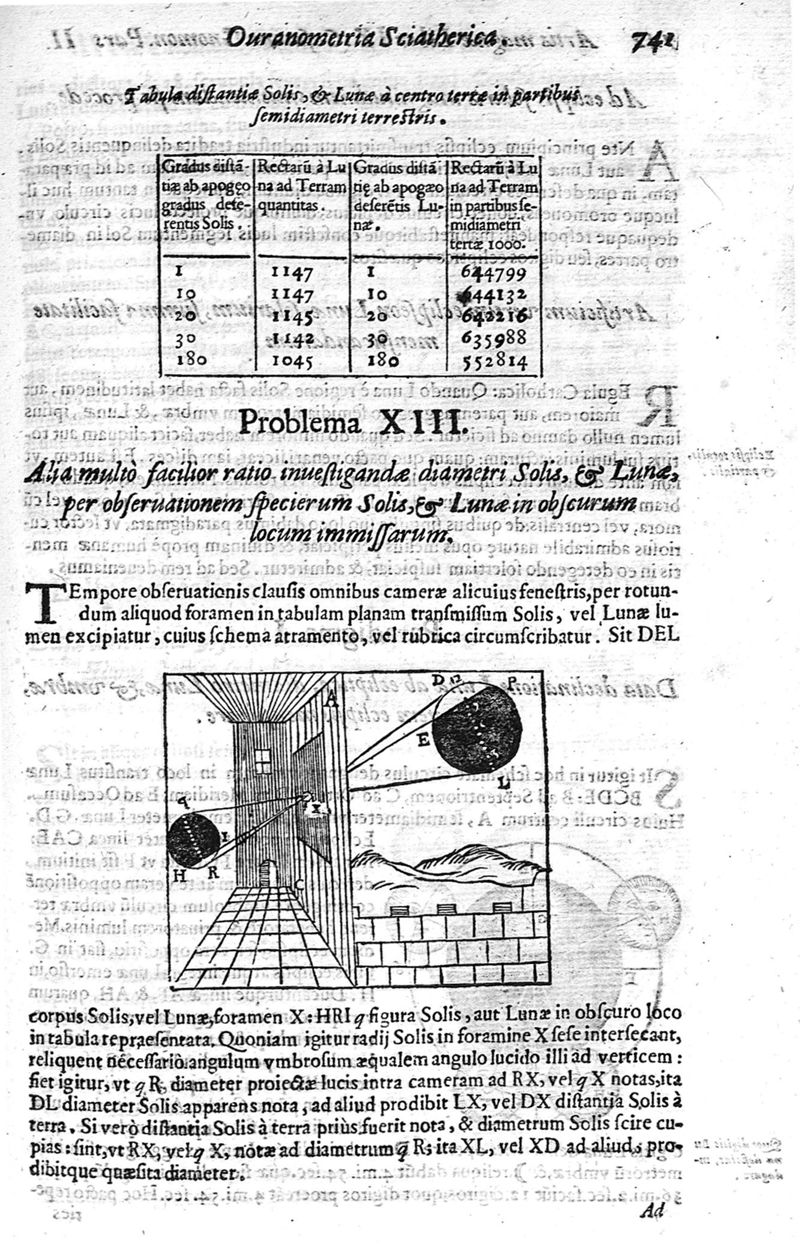 Ouranometria Sciatherica. 741
Tabula distantiæ Solis, & Lunæ à centro terræ in partibus
semidiametri terrestris.
Gradus distā- Rectarū à Lu Gradus distā Rectarū à Lu
tiæ ab apogęo na ad Terram tię ab apogæo na ad Terram
gradus defe- quantitas. deferētis Lu- in partibus se-
rentis Solis. næ. midiametri
terræ 1000.
1 1147 1 644799
10 1147 10 644132
20 1145 20 642216
30 1142 30 635988
180 1045 180 552814
Problema XIII.
Alia multò facilior ratio inuestigandæ diametri Solis, & Lunæ,
per obseruationem specierum Solis, & Lunæ in obscurum
locum immissarum.
TEmpore obseruationis clausis omnibus cameræ alicuius fenestris, per rotun-
dum aliquod foramen in tabulam planam transmissum Solis, vel Lunæ lu-
men excipiatur, cuius schema atramento, vel rubrica circumscribatur. Sit DEL
A
D 12 P
E
L
X
q
I
H R
C
corpus Solis, vel Lunæ, foramen X: HRI q figura Solis, aut Lunæ in obscuro loco
in tabula repræsentata. Quoniam igitur radij Solis in foramine X sese intersecant,
reliquent necessariò angulum vmbrosum æqualem angulo lucido illi ad verticem:
fiet igitur, vt q R, diameter proiectæ lucis intra cameram ad RX, vel q X notas, ita
DL diameter Solis apparens nota, ad aliud prodibit LX, vel DX distantia Solis à
terra. Si verò distantia Solis à terra priùs fuerit nota, & diametrum Solis scire cu-
pias: sint, vt RX, vel q X, notæ ad diametrum q R; ita XL, vel XD ad aliud, pro-
dibitque quæsita diameter.
Ad